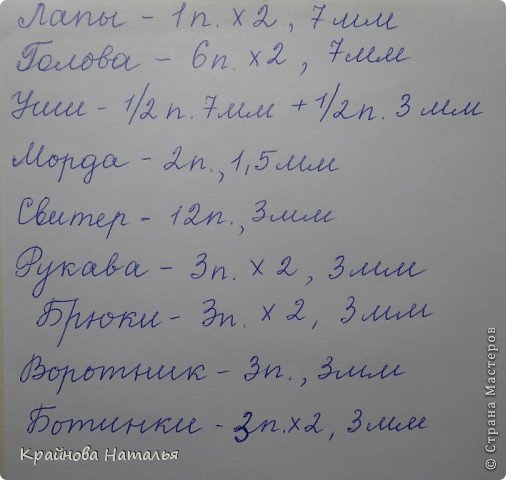 Лапы - 1п. х 2, 7мм
Голова - 6п. х2, 7мм
Уши - 1/2 п. 7мм + 1/2п. 3 мм
Морда - 2п., 1,5мм
Свитер - 12п., 3мм
Рукава - 3п. х 2, 3мм
Брюки - 3п. х 2, 3мм
Воротник - 3п., 3мм
Ботинки - 3п.х2, 3мм
Крайнова Наталья
© Страна Мастеров